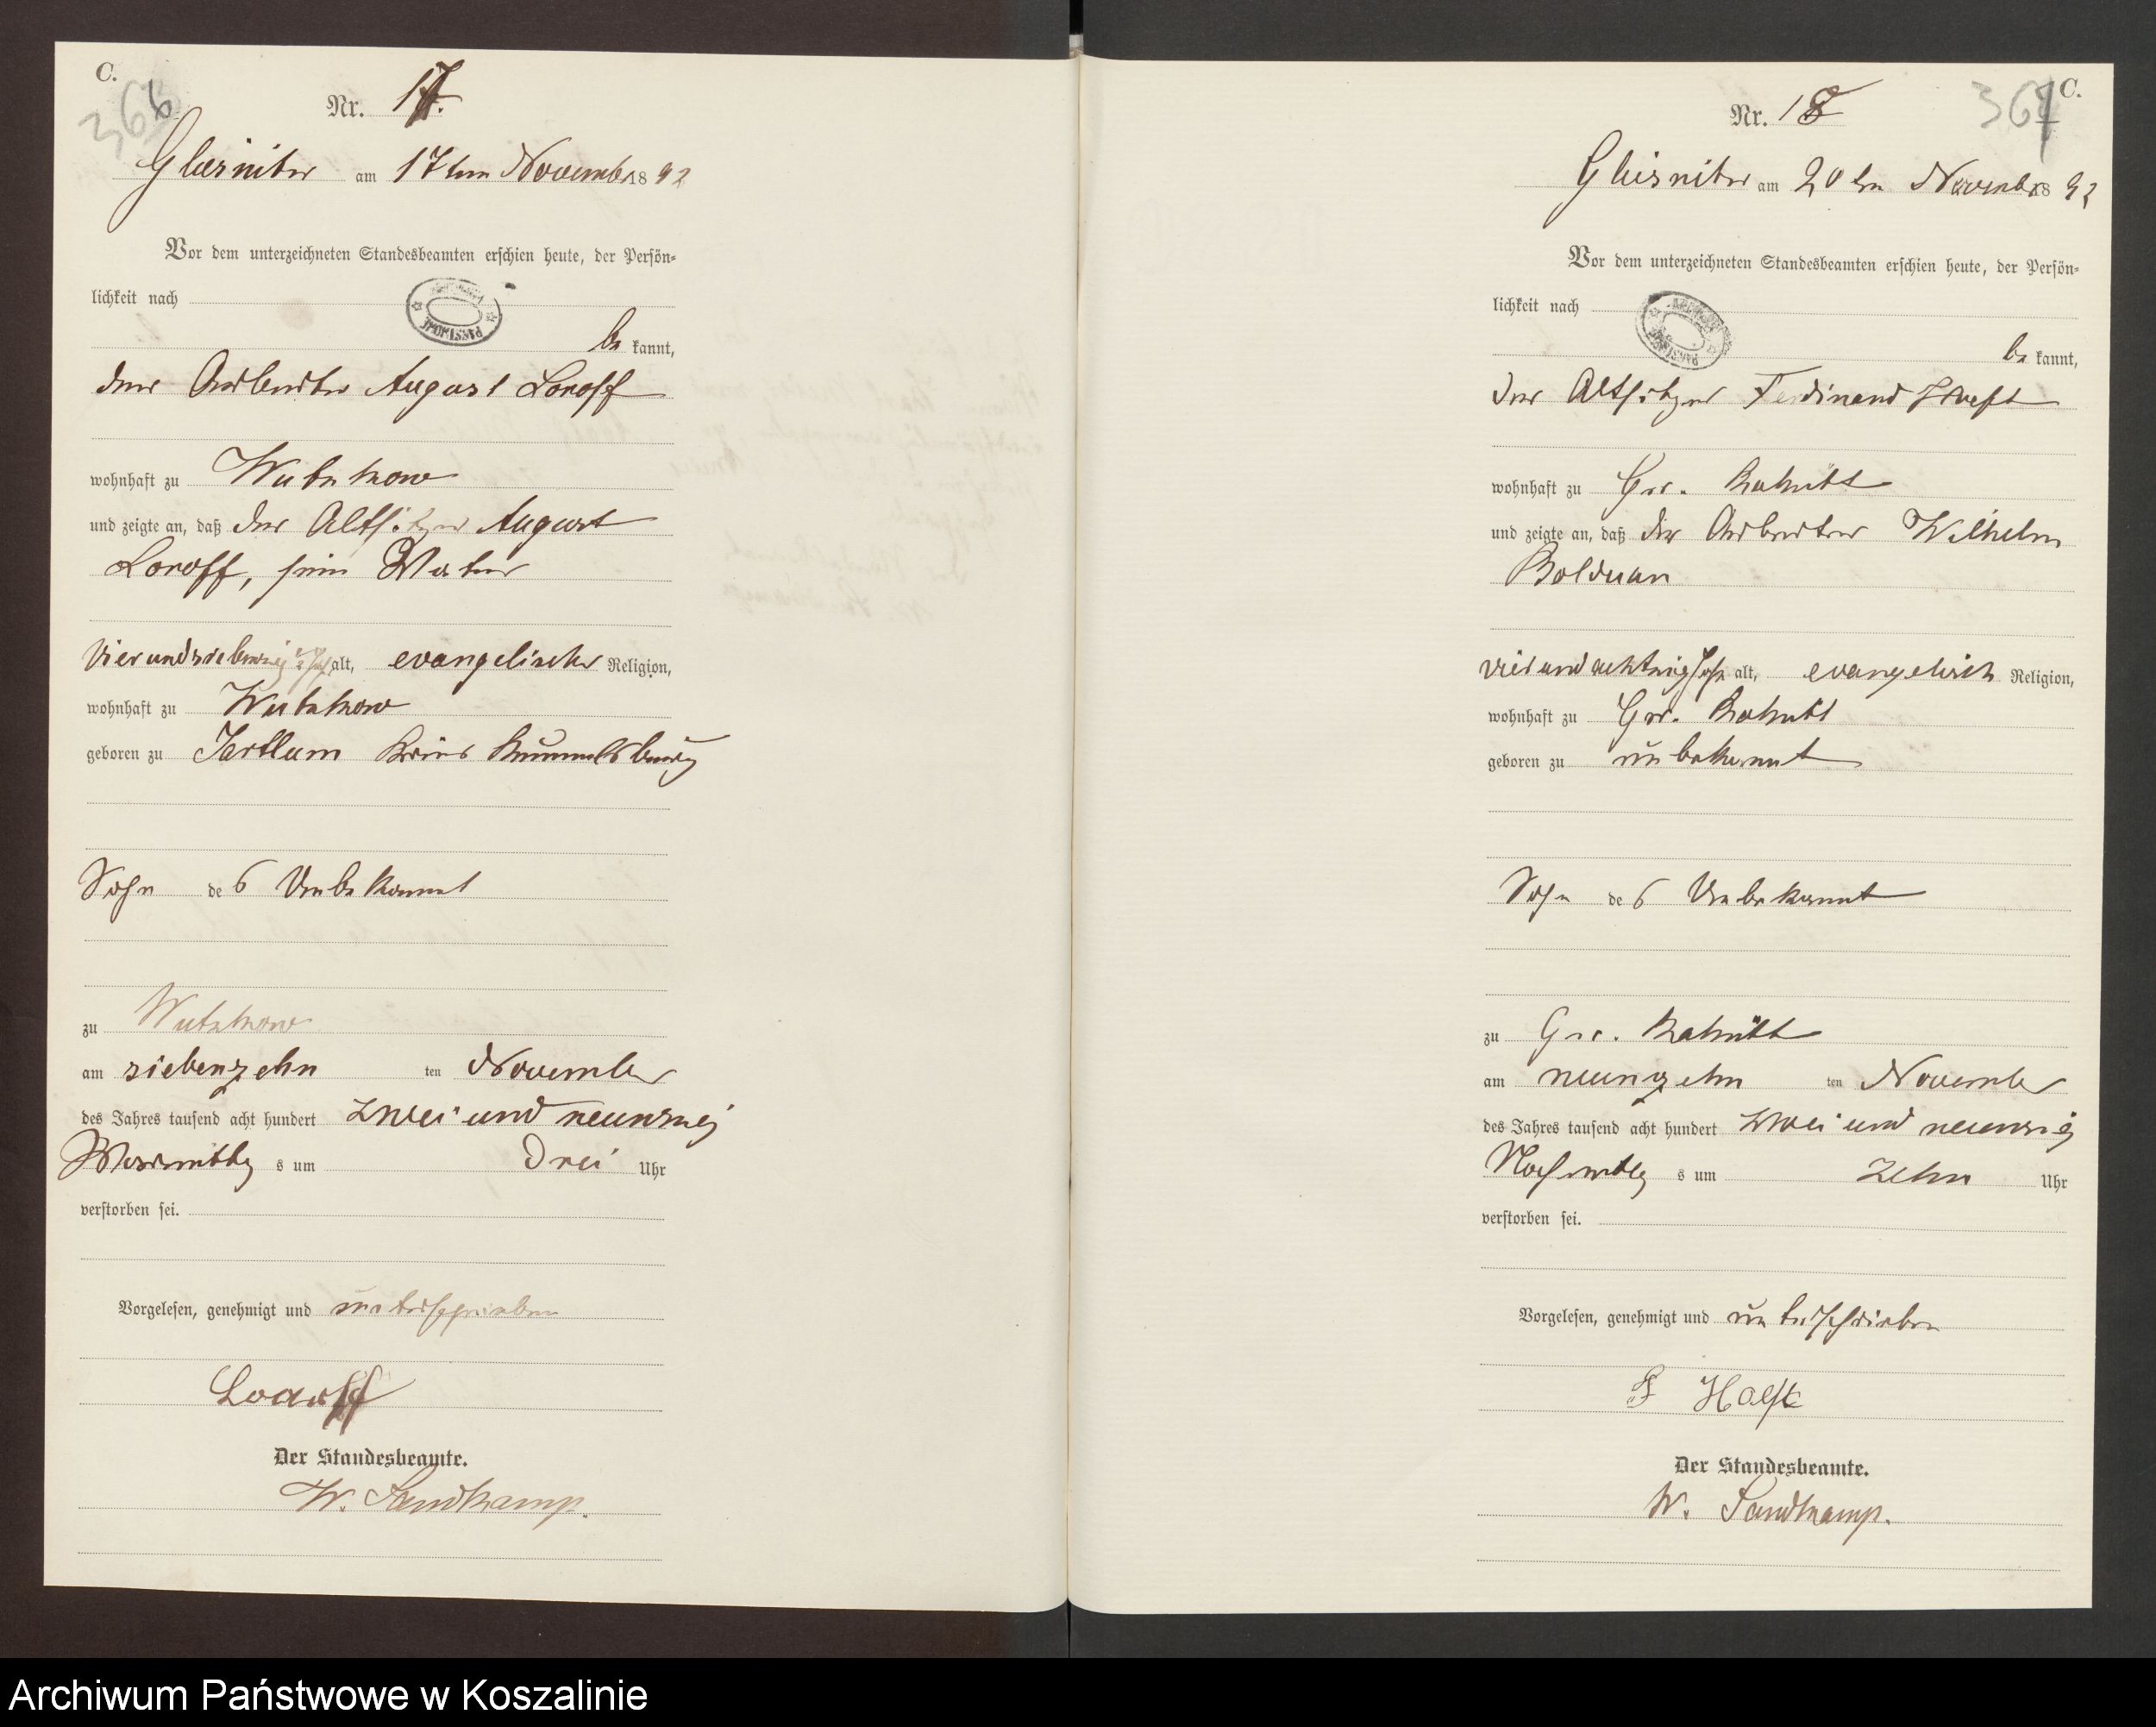 C.
366
Nr. 17.
am 17ten November 1892
Vor dem unterzeichneten Standesbeamten erschien heute, der Persön-
lichkeit nach
be kannt,
der Arbeiter August
wohnhaft zu Wutzkow
und zeigte an, daß der Altsitzer August
, sein Vater
Vierundsiebenzig alt, evangelischer Religion,
wohnhaft zu Wutzkow
geboren zu Kreis Rummelsburg
Sohn des Unbekannt
zu Wutzkow
am siebenzehn ten November
des Jahres tausend acht hundert zwei und neunzig
Vormittags um Drei Uhr
verstorben sei.
Vorgelesen, genehmigt und unterschrieben
Der Standesbeamte.
W. Sandkamp.
C.
367
Nr. 18
am 20ten November 1892
Vor dem unterzeichneten Standesbeamten erschien heute, der Persön-
lichkeit nach
be kannt,
der Altsitzer Ferdinand
wohnhaft zu Gr. Rakitt
und zeigte an, daß der Arbeiter Wilhelm
Bolduan
vierundachtzig Jahr alt, evangelisch Religion,
wohnhaft zu Gr. Rakitt
geboren zu unbekannt
Sohn des Unbekannt
zu Gr. Rakitt
am neunzehn ten November
des Jahres tausend acht hundert zwei und neunzig
Nachmittags um Zehn Uhr
verstorben sei.
Vorgelesen, genehmigt und unterschrieben
Der Standesbeamte.
W. Sandkamp.
Archiwum Państwowe w Koszalinie